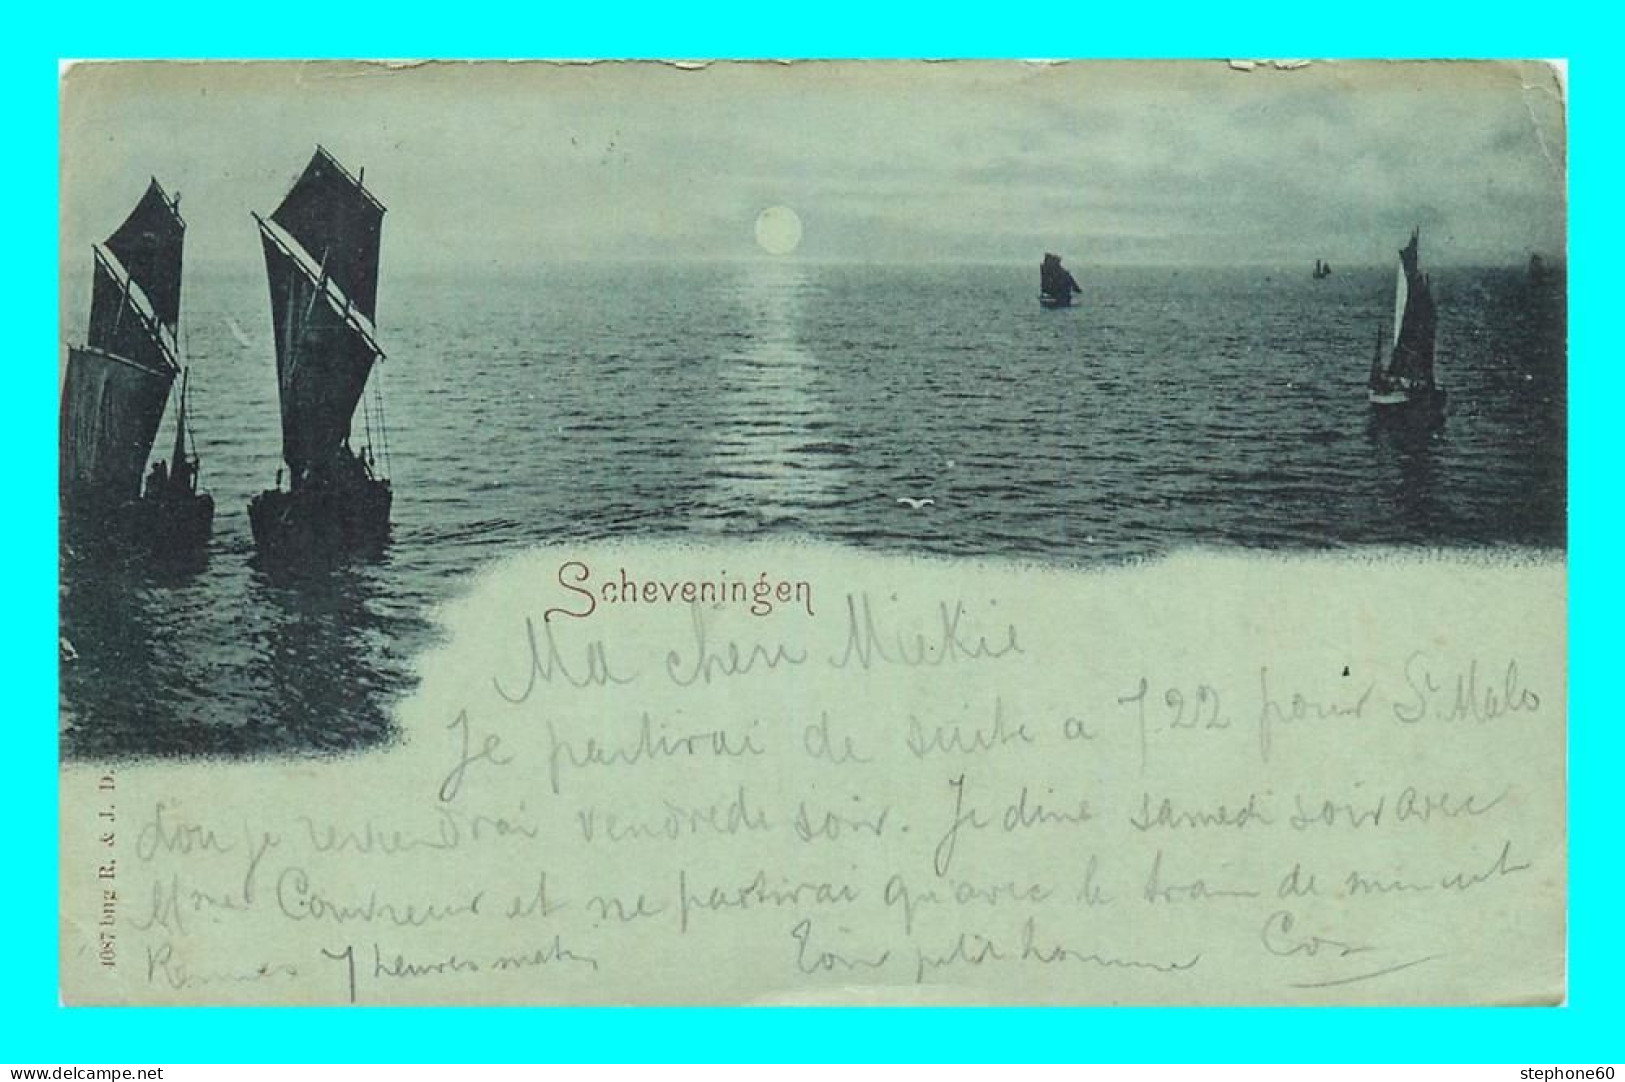 Scheveningen
Ma cheri Miekie
Je partirai de suite a 7.22 pour St Malo
dou je reviendrai vendredi soir. Je dine samedi soir avec
Mme Couvreur et ne partirai qu'avec le train de minuit
Rennes 7 heures matin Ton petit homme Cos
1087 bng R. & J. D.
www.delcampe.net
stephone60